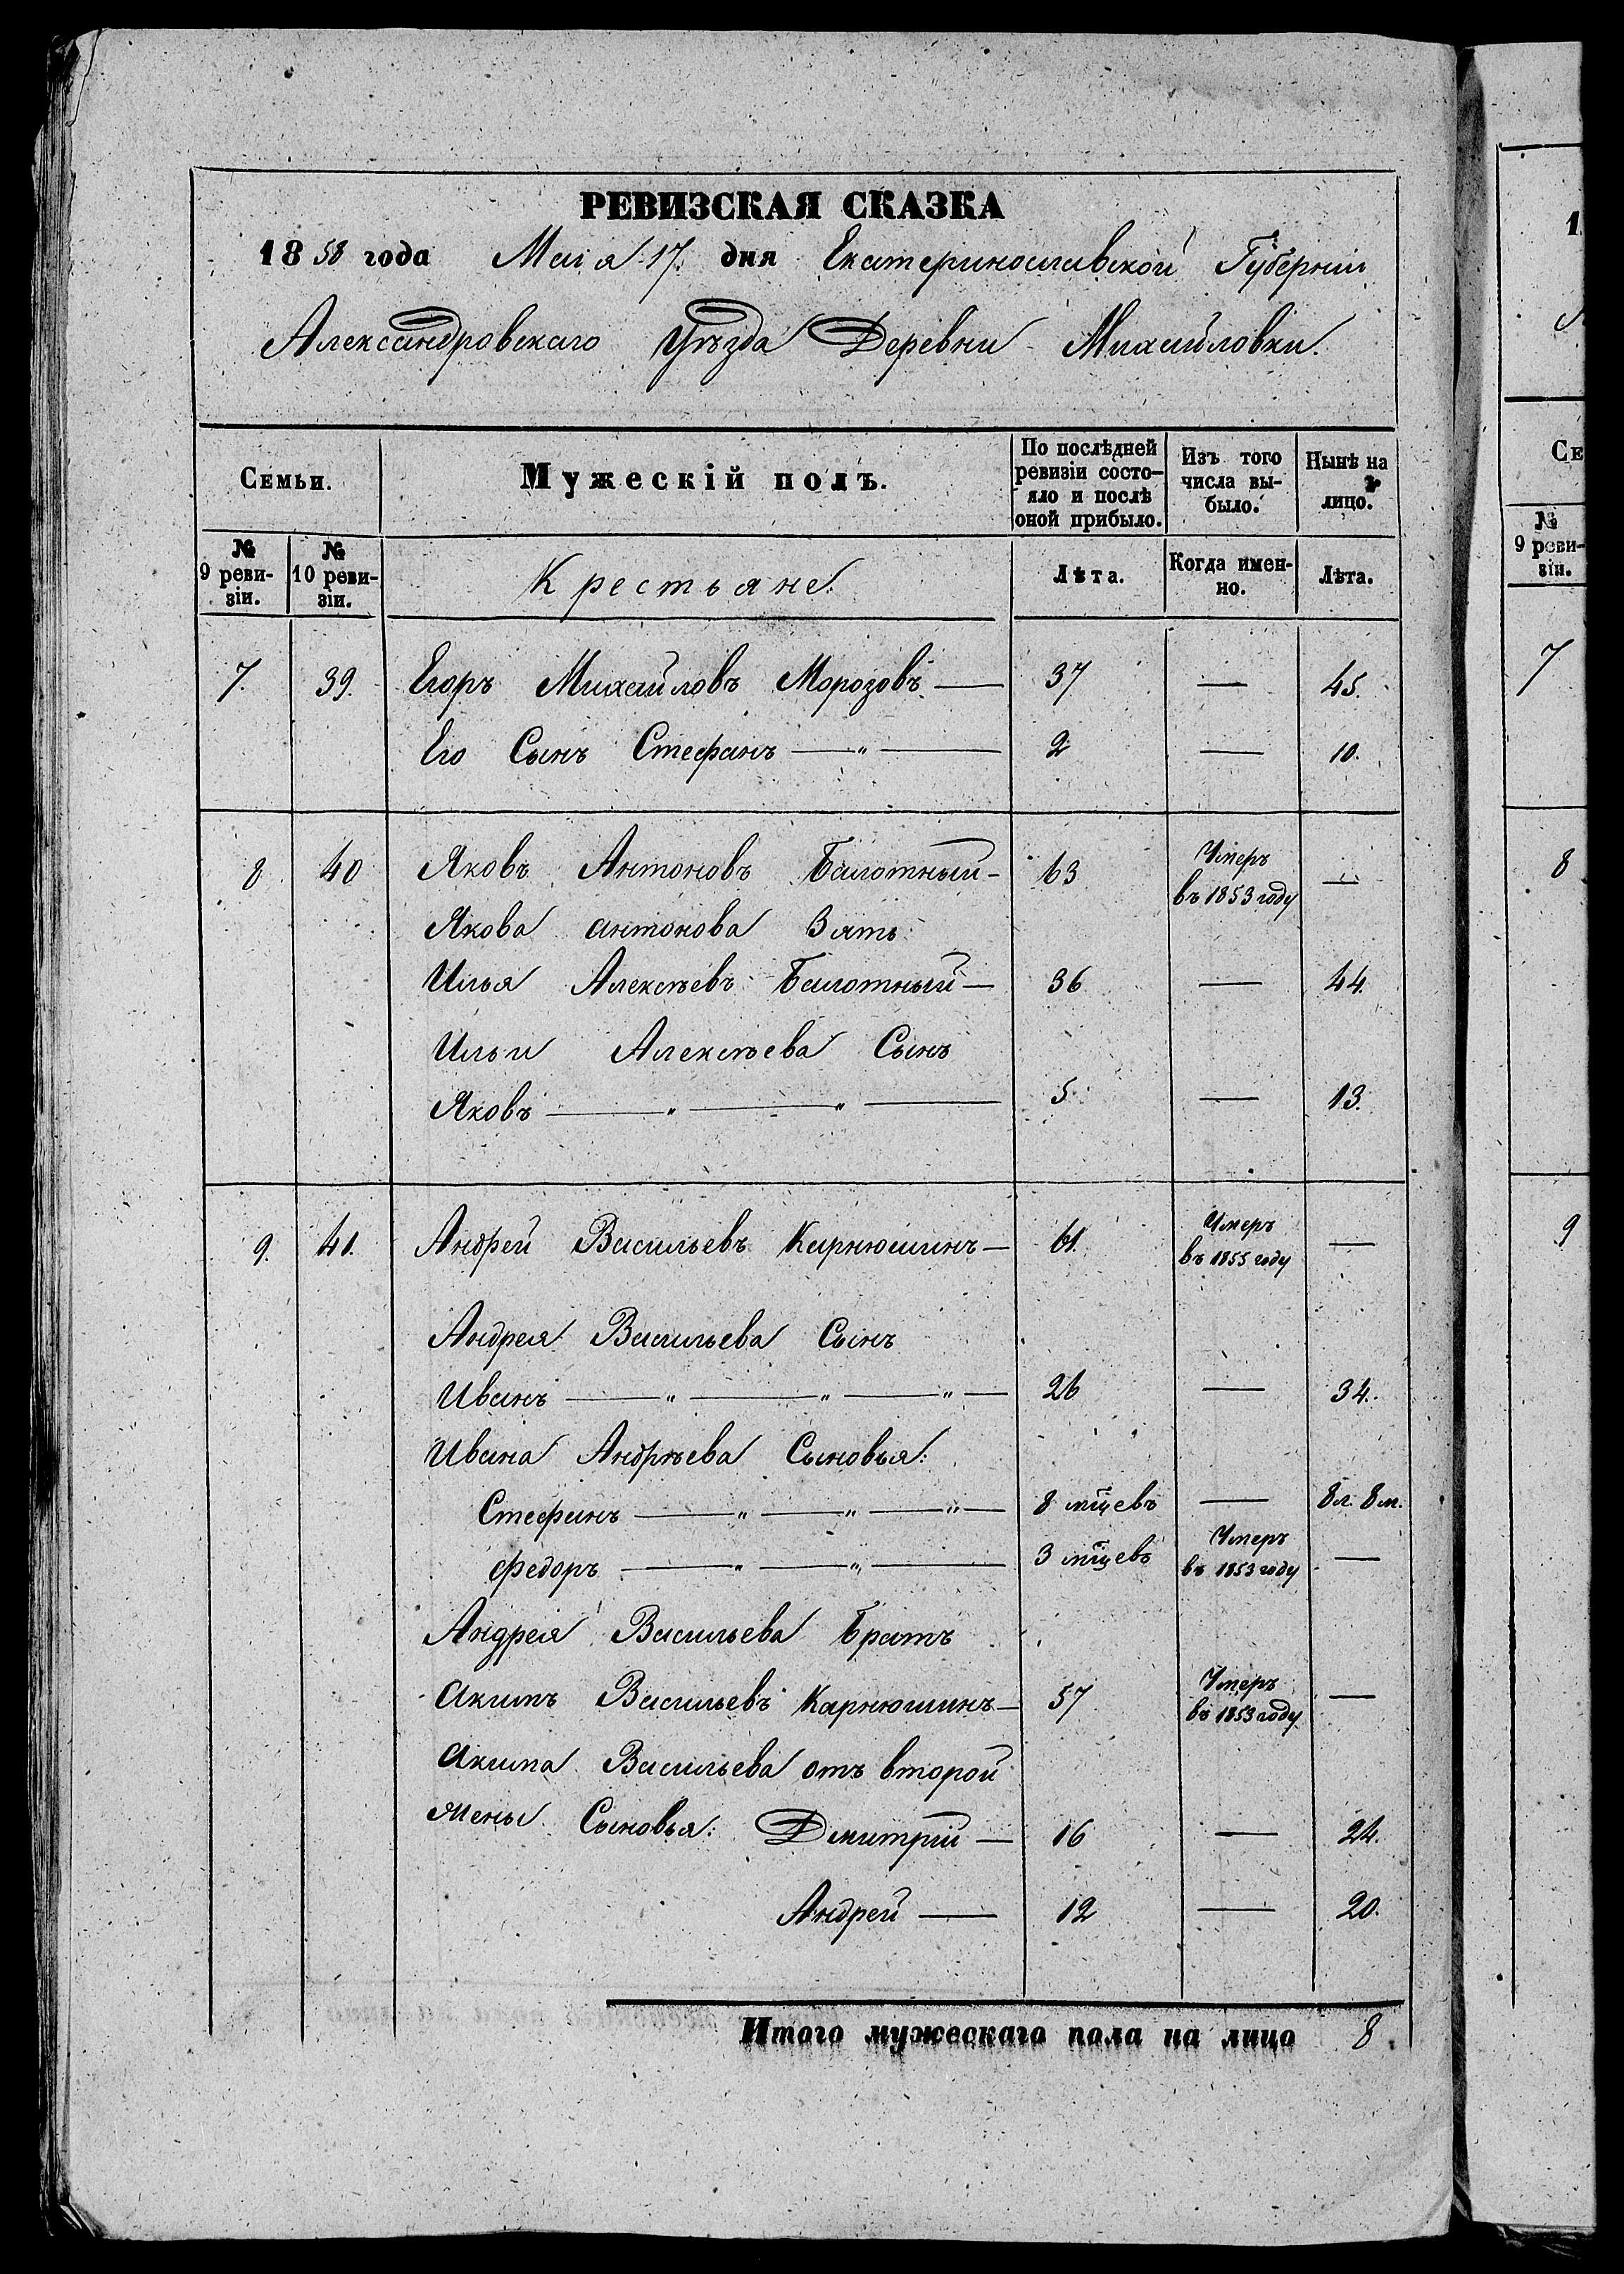 РЕВИЗСКАЯ СКАЗКА
1858 года Маія 17. дня Екатеринославской Губерніи
Александровскаго Уѣзда Деревни Михайловки.
Семьи. Мужескій полъ. По послѣдней ревизіи состояло и послѣ оной прибыло. Изъ того числа выбыло. Нынѣ на лицо.
№ 9 ревизіи. № 10 ревизіи. Крестьяне. Лѣта. Когда именно. Лѣта.
7. 39. Егоръ Михайловъ Морозовъ — 37 — 45.
Его Сынъ Стефанъ — „ — 2 — 10.
8 40 Яковъ Антоновъ Балотный — 63 Умеръ въ 1853 году —
Якова антонова Зять
Илья Алексѣевъ Балотный — 36 — 44.
Ильи Алексѣева Сынъ
Яковъ — „ — „ — 5 — 13.
9. 41. Андрей Васильевъ Карнюшинъ — 61. Умеръ въ 1855 году —
Андрея Васильева Сынъ
Иванъ — „ — „ — „ — 26 — 34.
Ивана Андрѣева Сыновья:
Стефанъ — „ — „ — „ — 8 мцевъ — 8 л. 8 м.
Федоръ — „ — „ — 3 мцевъ Умеръ въ 1853 году —
Андрея Васильева Братъ
Акимъ Васильевъ Карнюшинъ — 57 Умеръ въ 1853 году —
Акима Васильева отъ второй
жены Сыновья: Дмитрій — 16 — 24.
Андрей — 12 — 20.
Итого мужескаго пола на лицо 8.
№ 9 реви-
зіи.
7
8
9